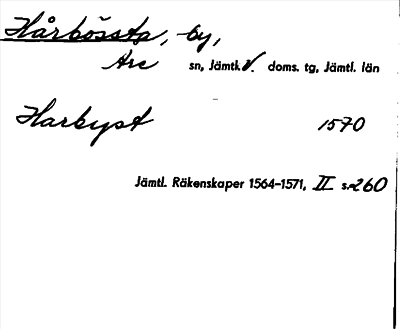 Hårbössta, by,
Are sn, Jämtl. v. doms. tg, Jämtl. län
Harbyst 1570
Jämtl. Räkenskaper 1564-1571, II s. 260